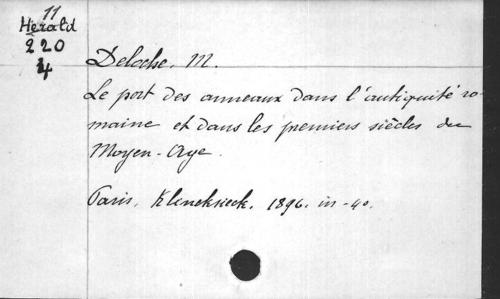 11
Herald
220
4
Deloche, M.
Le port des anneaux dans l'antiquité ro-
maine et dans les premiers siècles du
Moyen-Age.
Paris, Klincksieck. 1896. in-4o.